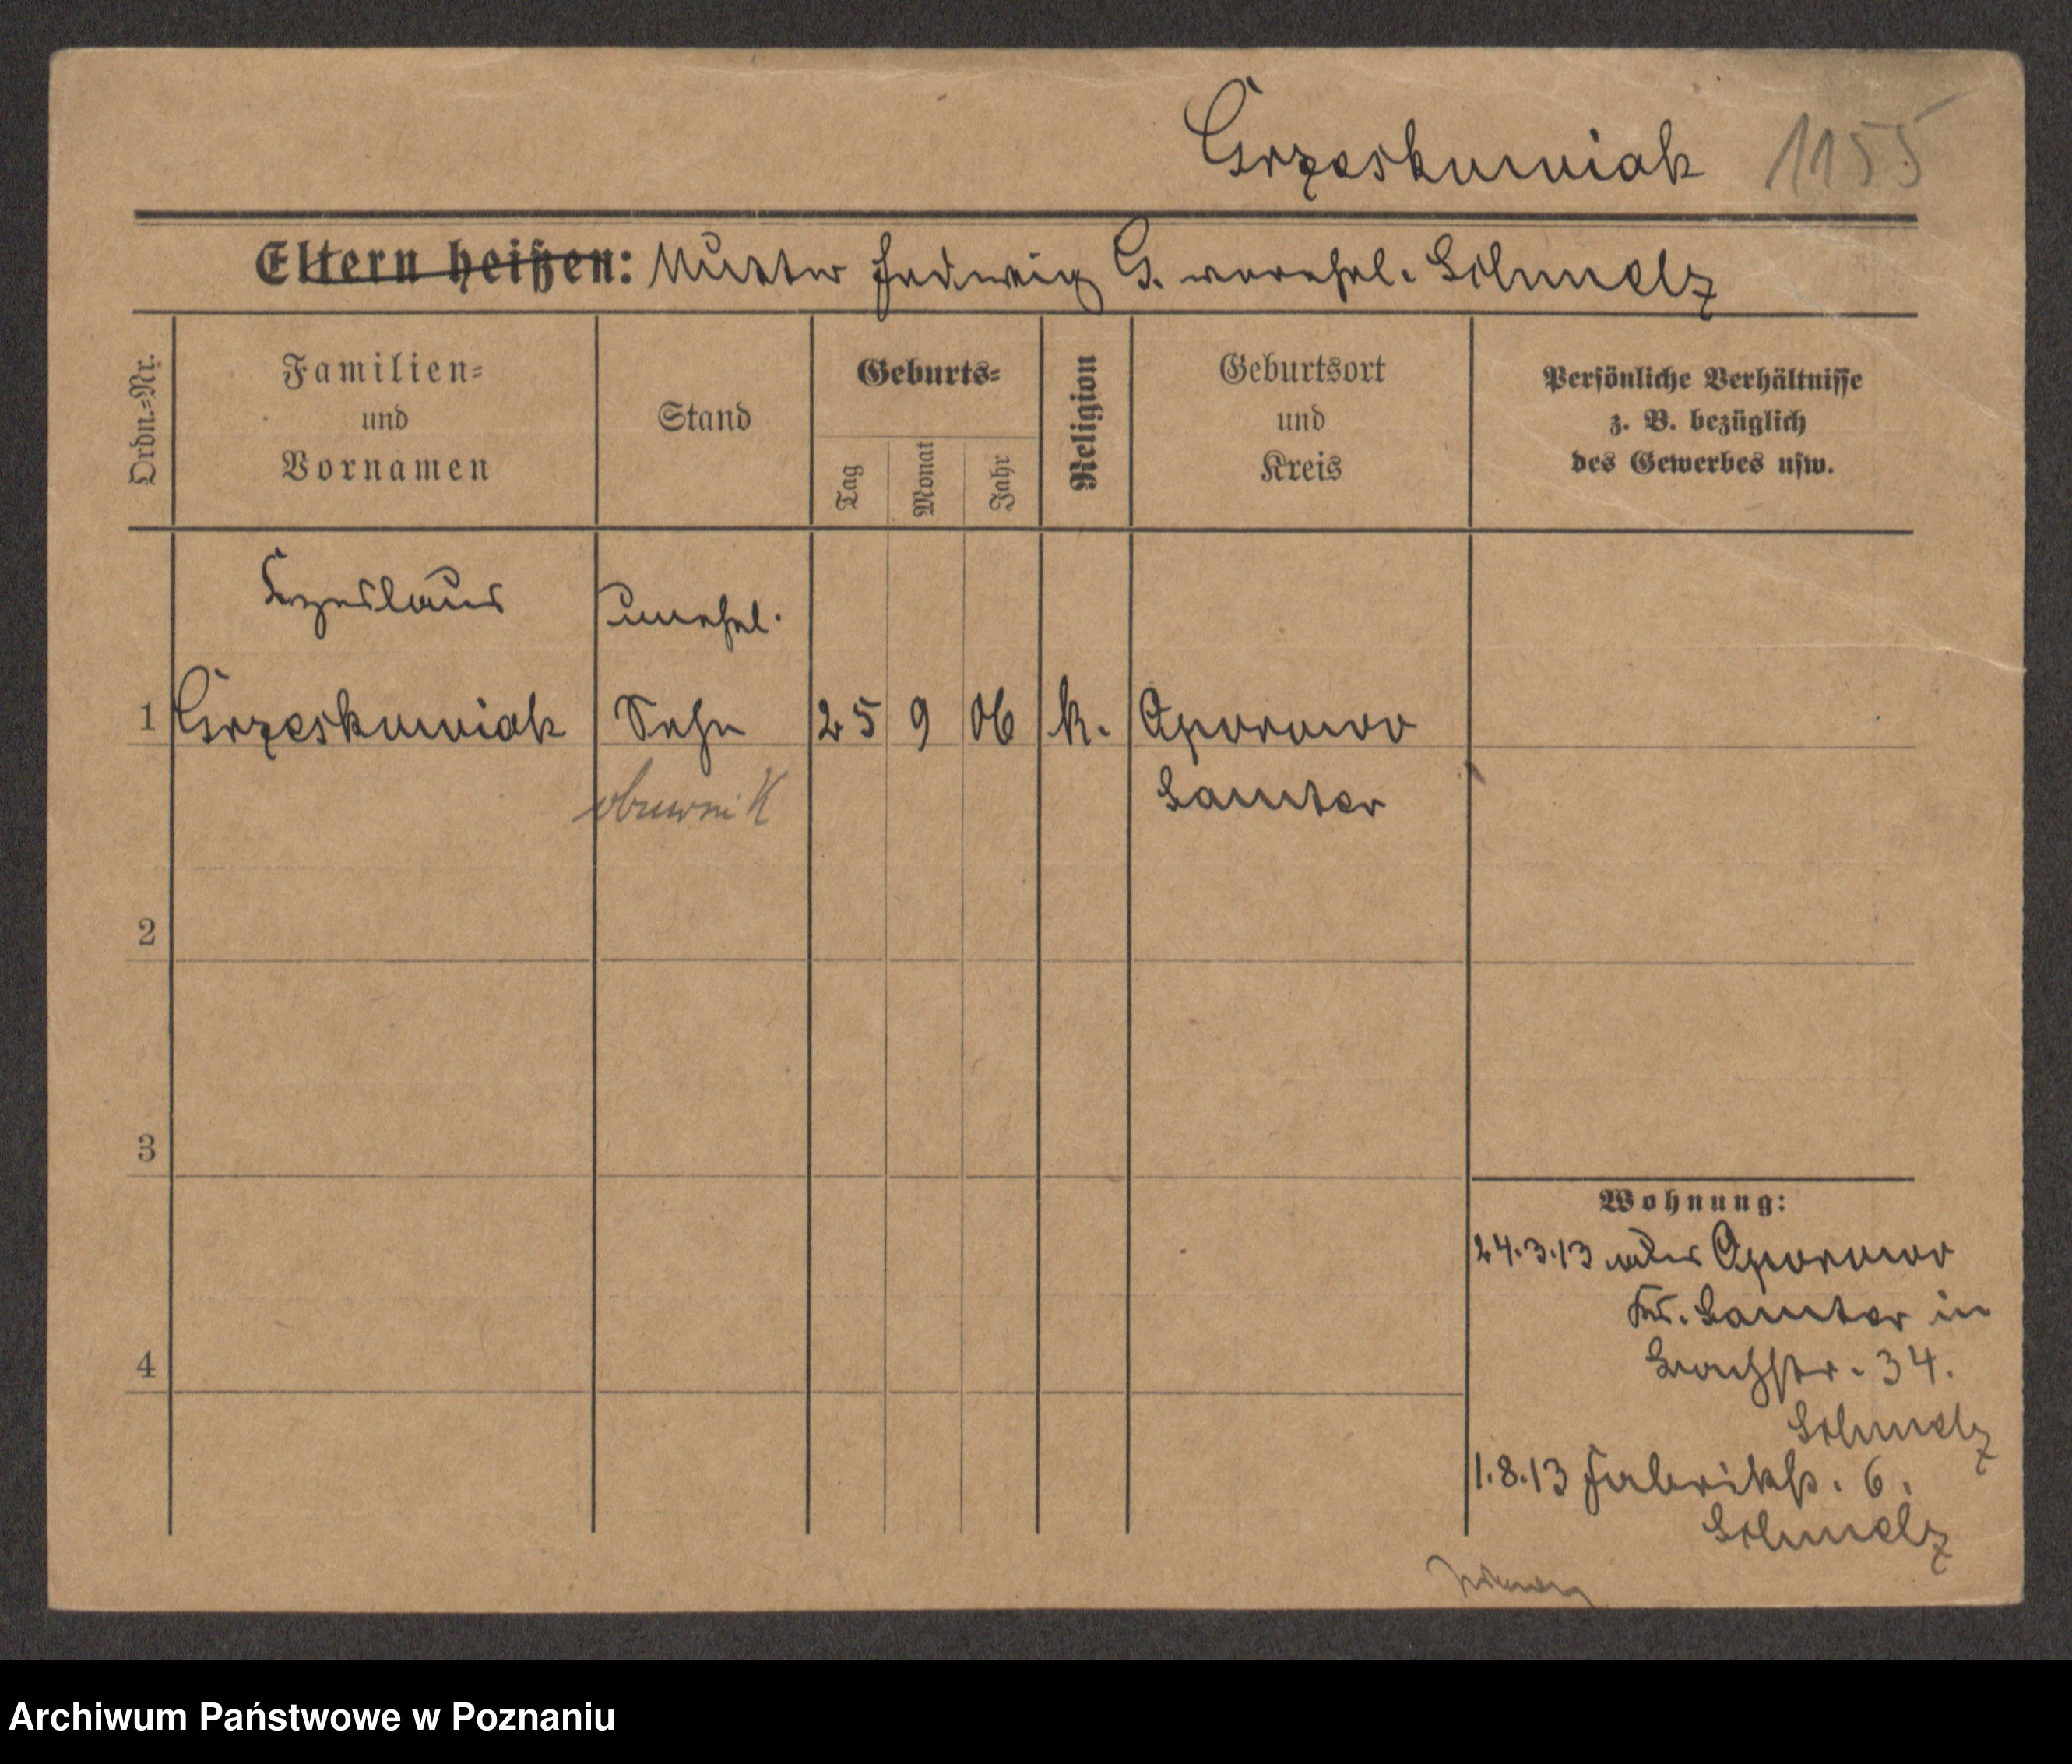 Grzeskowiak 1155
Eltern heißen: Mutter Hedwig G. verehel. Schmelz
Ordn.-Nr.
Familien-
und
Vornamen
Stand
Geburts-
Tag
Monat
Jahr
Religion
Geburtsort
und
Kreis
Persönliche Verhältnisse
z. B. bezüglich
des Gewerbes usw.
Czeslaus unehel.
1 Grzeskowiak Sohn 25 9 06 k. Oporowo
obuwnik Samter
2
3
4
Wohnung:
24.3.13 aus Oporowo
Kr. Samter in
34.
Schmelz
1.8.13 Fabrikstr. 6.
Schmelz
Archiwum Państwowe w Poznaniu